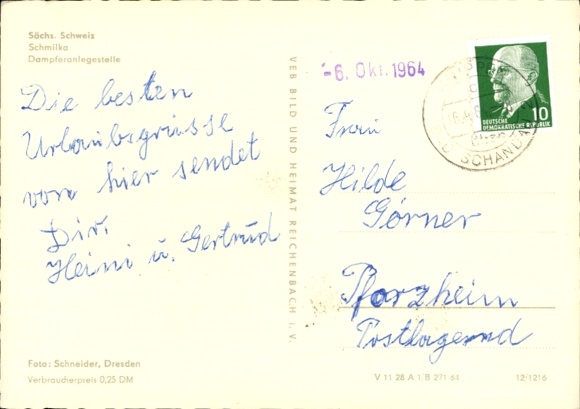 Sächs. Schweiz
Schmilka
Dampferanlegestelle
Die besten
Urlaubsgrüsse
von hier sendet
Dir.
Heini u. Gertrud
Foto: Schneider, Dresden
Verbraucherpreis 0,25 DM
VEB BILD UND HEIMAT REICHENBACH I. V.
-6. Okt. 1964
DEUTSCHE
DEMOKRATISCHE REPUBLIK
10
SCHANDAU
Frau
Hilde
Görner
Pforzheim
Postlagernd
V 11 28 A 1/B 271 64
12/1216